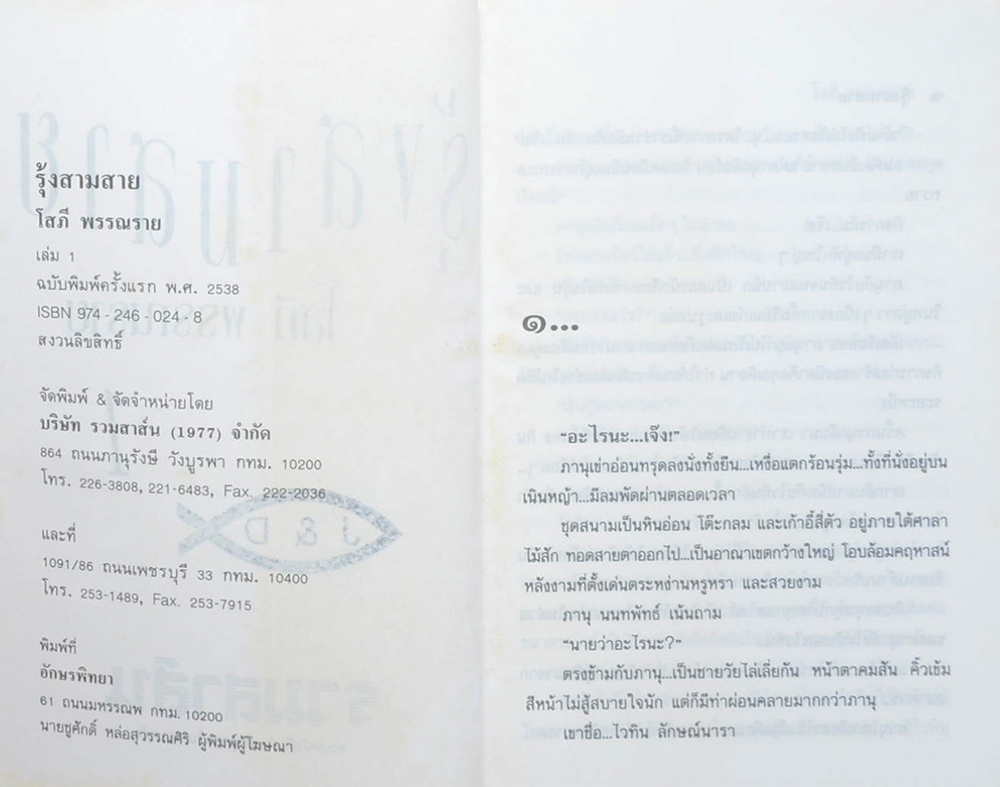 รุ้งสามสาย
โสภี พรรณราย
เล่ม 1
ฉบับพิมพ์ครั้งแรก พ.ศ. 2538
ISBN 974 - 246 - 024 - 8
สงวนลิขสิทธิ์
จัดพิมพ์ & จัดจำหน่ายโดย
บริษัท รวมสาส์น (1977) จำกัด
864 ถนนภานุรังษี วังบูรพา กทม. 10200
โทร. 226-3808, 221-6483, Fax. 222-2036
และที่
1091/86 ถนนเพชรบุรี 33 กทม. 10400
โทร. 253-1489, Fax. 253-7915
พิมพ์ที่
อักษรพิทยา
61 ถนนมหรรณพ กทม. 10200
นายชูศักดิ์ หล่อสุวรรณศิริ ผู้พิมพ์ผู้โฆษณา
J & D
๑...
"อะไรนะ...เจ๊ง!"
ภานุเข่าอ่อนทรุดลงนั่งทั้งยืน...เหงื่อแตกร้อนรุ่ม...ทั้งที่นั่งอยู่บน
เนินหญ้า...มีลมพัดผ่านตลอดเวลา
ชุดสนามเป็นหินอ่อน โต๊ะกลม และเก้าอี้สี่ตัว อยู่ภายใต้ศาลา
ไม้สัก ทอดสายตาออกไป...เป็นอาณาเขตกว้างใหญ่ โอบล้อมคฤหาสน์
หลังงามที่ตั้งเด่นตระหง่านหรูหรา และสวยงาม
ภานุ นนทพัทธ์ เน้นถาม
"นายว่าอะไรนะ?"
ตรงข้ามกับภานุ...เป็นชายวัยไล่เลี่ยกัน หน้าตาคมสัน คิ้วเข้ม
สีหน้าไม่สู้สบายใจนัก แต่ก็มีท่าผ่อนคลายมากกว่าภานุ
เขาชื่อ...ไวทิน ลักษณ์นารา